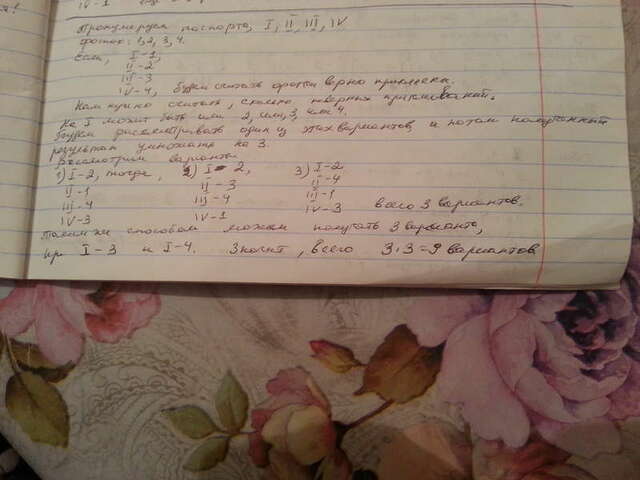 IV-1
Пронумеруем паспорта, I, II, III, IV
фотки: 1, 2, 3, 4.
Если, I-1,
II-2
III-3
IV-4, будем считать фотки верно приклеены.
Нам нужно считать, сколько неверных приклеиваний.
На I может быть или 2, или 3, или 4.
Будем рассматривать один из этих вариантов, а потом полученный
результат умножать на 3.
Рассмотрим варианты
1) I-2, тогда, 2) I-2, 3) I-2
II-1 II-3 II-4
III-4 III-4 III-1
IV-3 IV-1 IV-3 всего 3 варианта.
Таким же способом можем получать 3 варианта,
пр I-3 и I-4. Значит, всего 3·3=9 вариантов